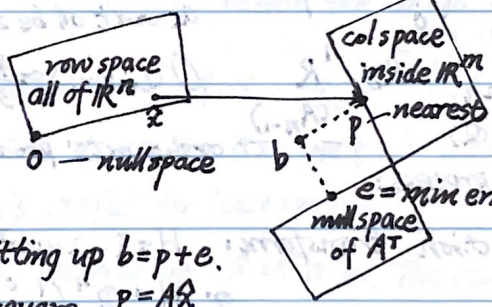 row space
all of ℝⁿ
x̂
0 — nullspace
col space
inside ℝᵐ
p
nearest
b
e = min
nullspace
of Aᵀ
up b=p+e.
p = Ax̂